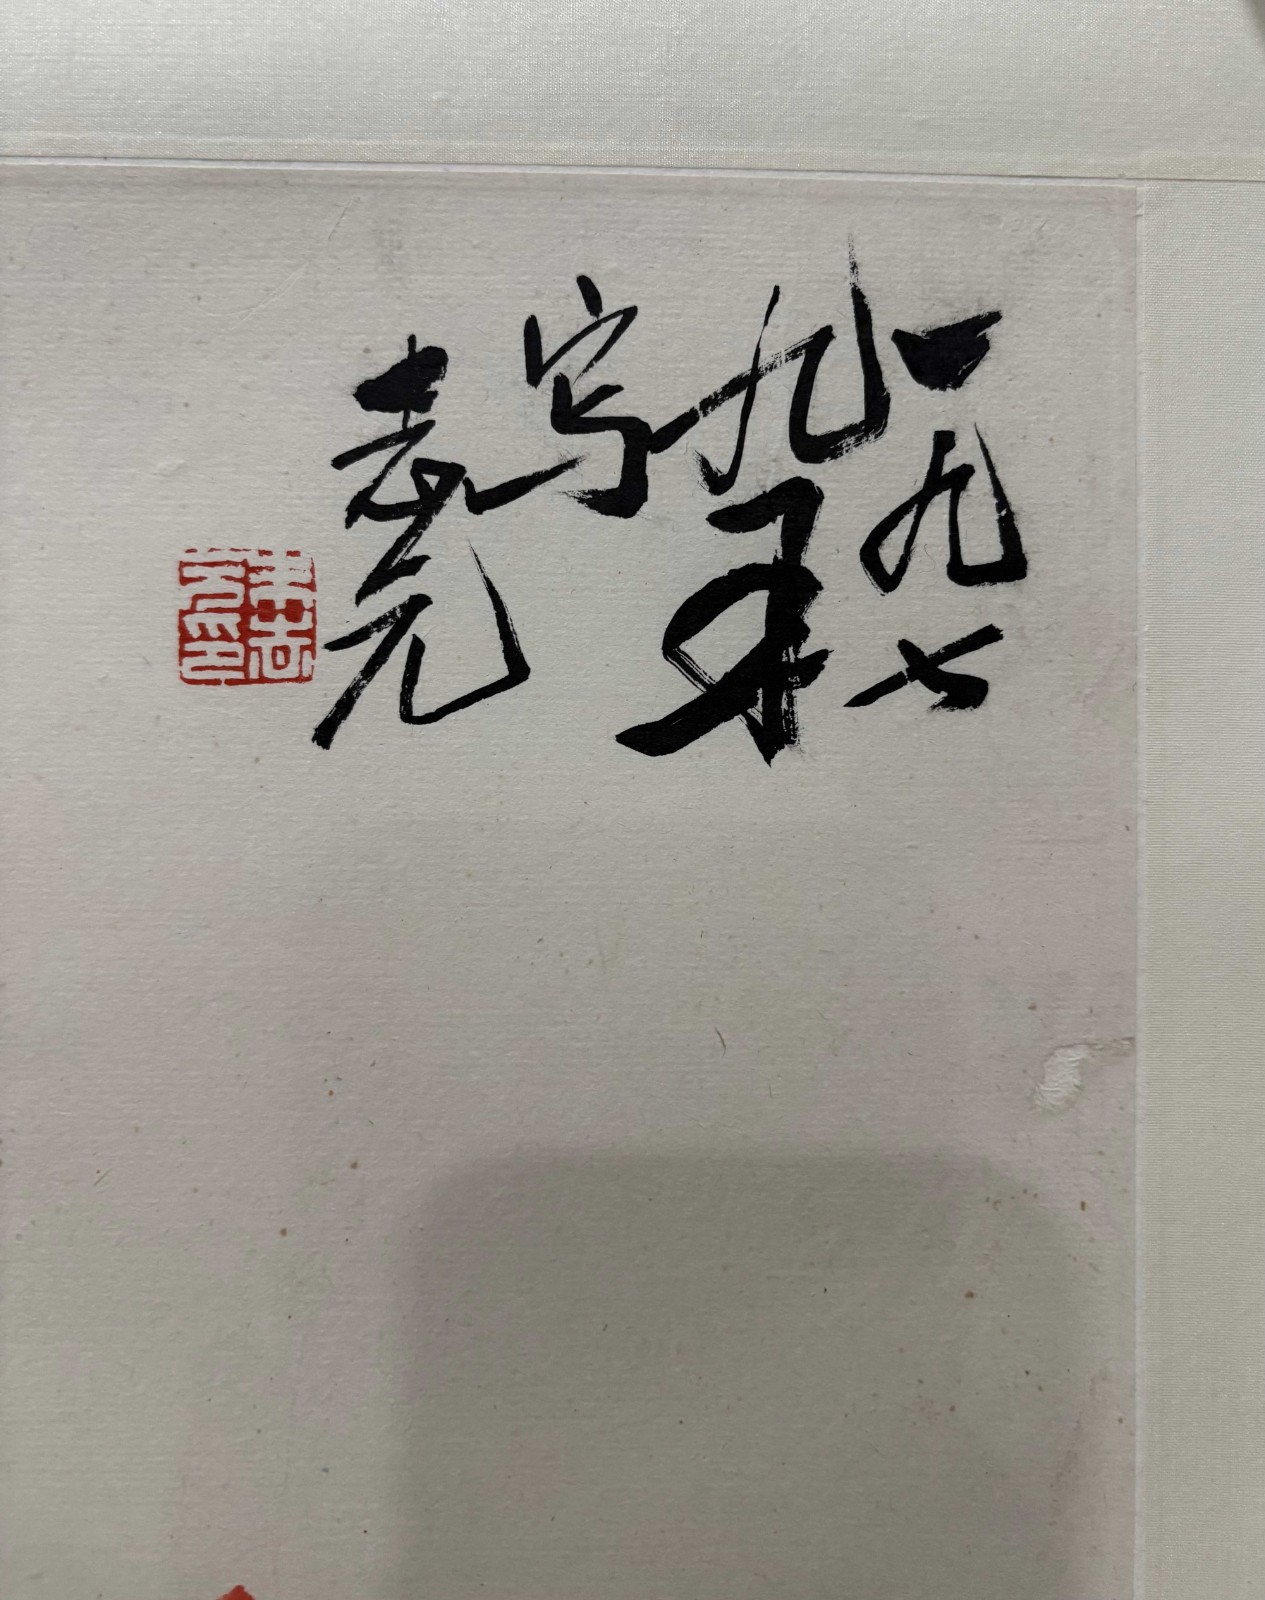 一九七
九年
写
志元